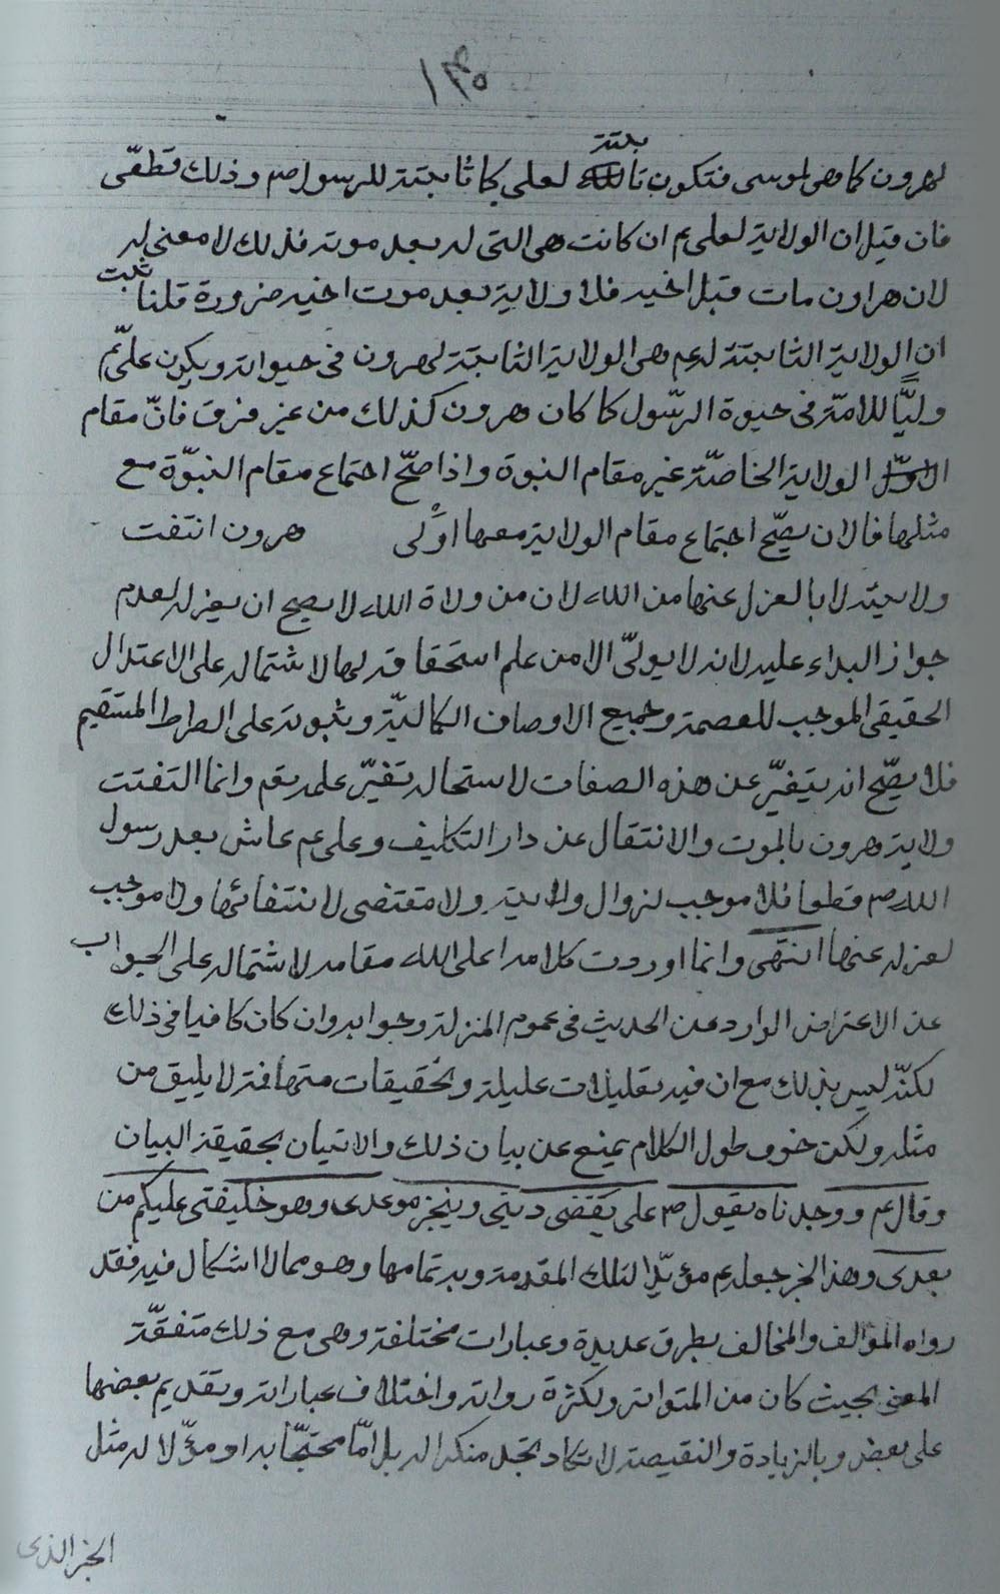 ١٣٥
لهرون كما هى لموسى فتكون ثابتة لعلى كما ثابتة للرسول ص وذلك قطعّى
فان قيل ان الولاية لعلى ع م ان كانت هى التى له بعد موته فذلك لا معنى له
لان هراون مات قبل اخيه فلا ولاية بعد موت اخيه ضرورة قلنا ثبت
ان الولاية الثابتة له ع م هى الولاية الثابتة لهرون فى حيواته ويكون علىّ ع م
وليًّا للامّة فى حيوة الرسّول كما كان هرون كذلك من غير فرق فانّ مقام
الولاية الخاصّة غير مقام النبوة واذا صّح اجتماع مقام النبوّة مع
مثلها فالان يصّح اجتماع مقام الولاية معها اوْلى هرون انتفت
ولايته لا بالعزل عنها من الله لان من ولاة الله لا يصح ان يعزله لعدم
جواز البداء عليه لانه لا يولىّ الا من علم استحقاقه لها لاشتماله على الاعتدال
الحقيقى الموجب للعصمة وجميع الاوصاف الكماليّة وثبوته على الصراط المستقيم
فلا يصّح انه يتغيّر عن هذه الصفات لاستحالة تغيّر علمه تعم وانما التفتت
ولاية هرون بالموت والانتقال عن دار التكليف وعلى ع م عاش بعد رسول
الله ص قطعا فلا موجب لزوال ولايته ولا مقتضى لانتفائها ولا موجب
لعزله عنها انتهى وانما اوردت كلامه اعلى الله مقامه لاشتماله على الجواب
عن الاعتراض الوارد عن الحديث فى عموم المنزلة وجوابه وان كان كافيا فى ذلك
لكنّه ليس بذلك مع ان فيه تعليلات عليلة وتحقيقات متهافتة لا يليق من
مثله ولكن خوف طول الكلام يمنع عن بيان ذلك والاتيان بحقيقة البيان
وقال ع م ووجدناه يقول ص على يقضى دينى وينجز موعدى وهو خليفتى عليكم من
بعدى وهذا الخبر جعله ع م مؤيّدا لتلك المقدمة وبه تمامها وهو مما لا اشكال فيه فقد
رواه المؤالف والمخالف بطرق عديدة وعبارات مختلفة وهى مع ذلك متفقّة
المعنى بحيث كان من المتواتر ولكثرة رواته واختلاف عباراته وتقديم بعضها
على بعض وبالزيادة والنقيصة لا تكاد تجد منكرا له بل امّا محتجّا به او مؤّلا له مثل
الخبر الذى